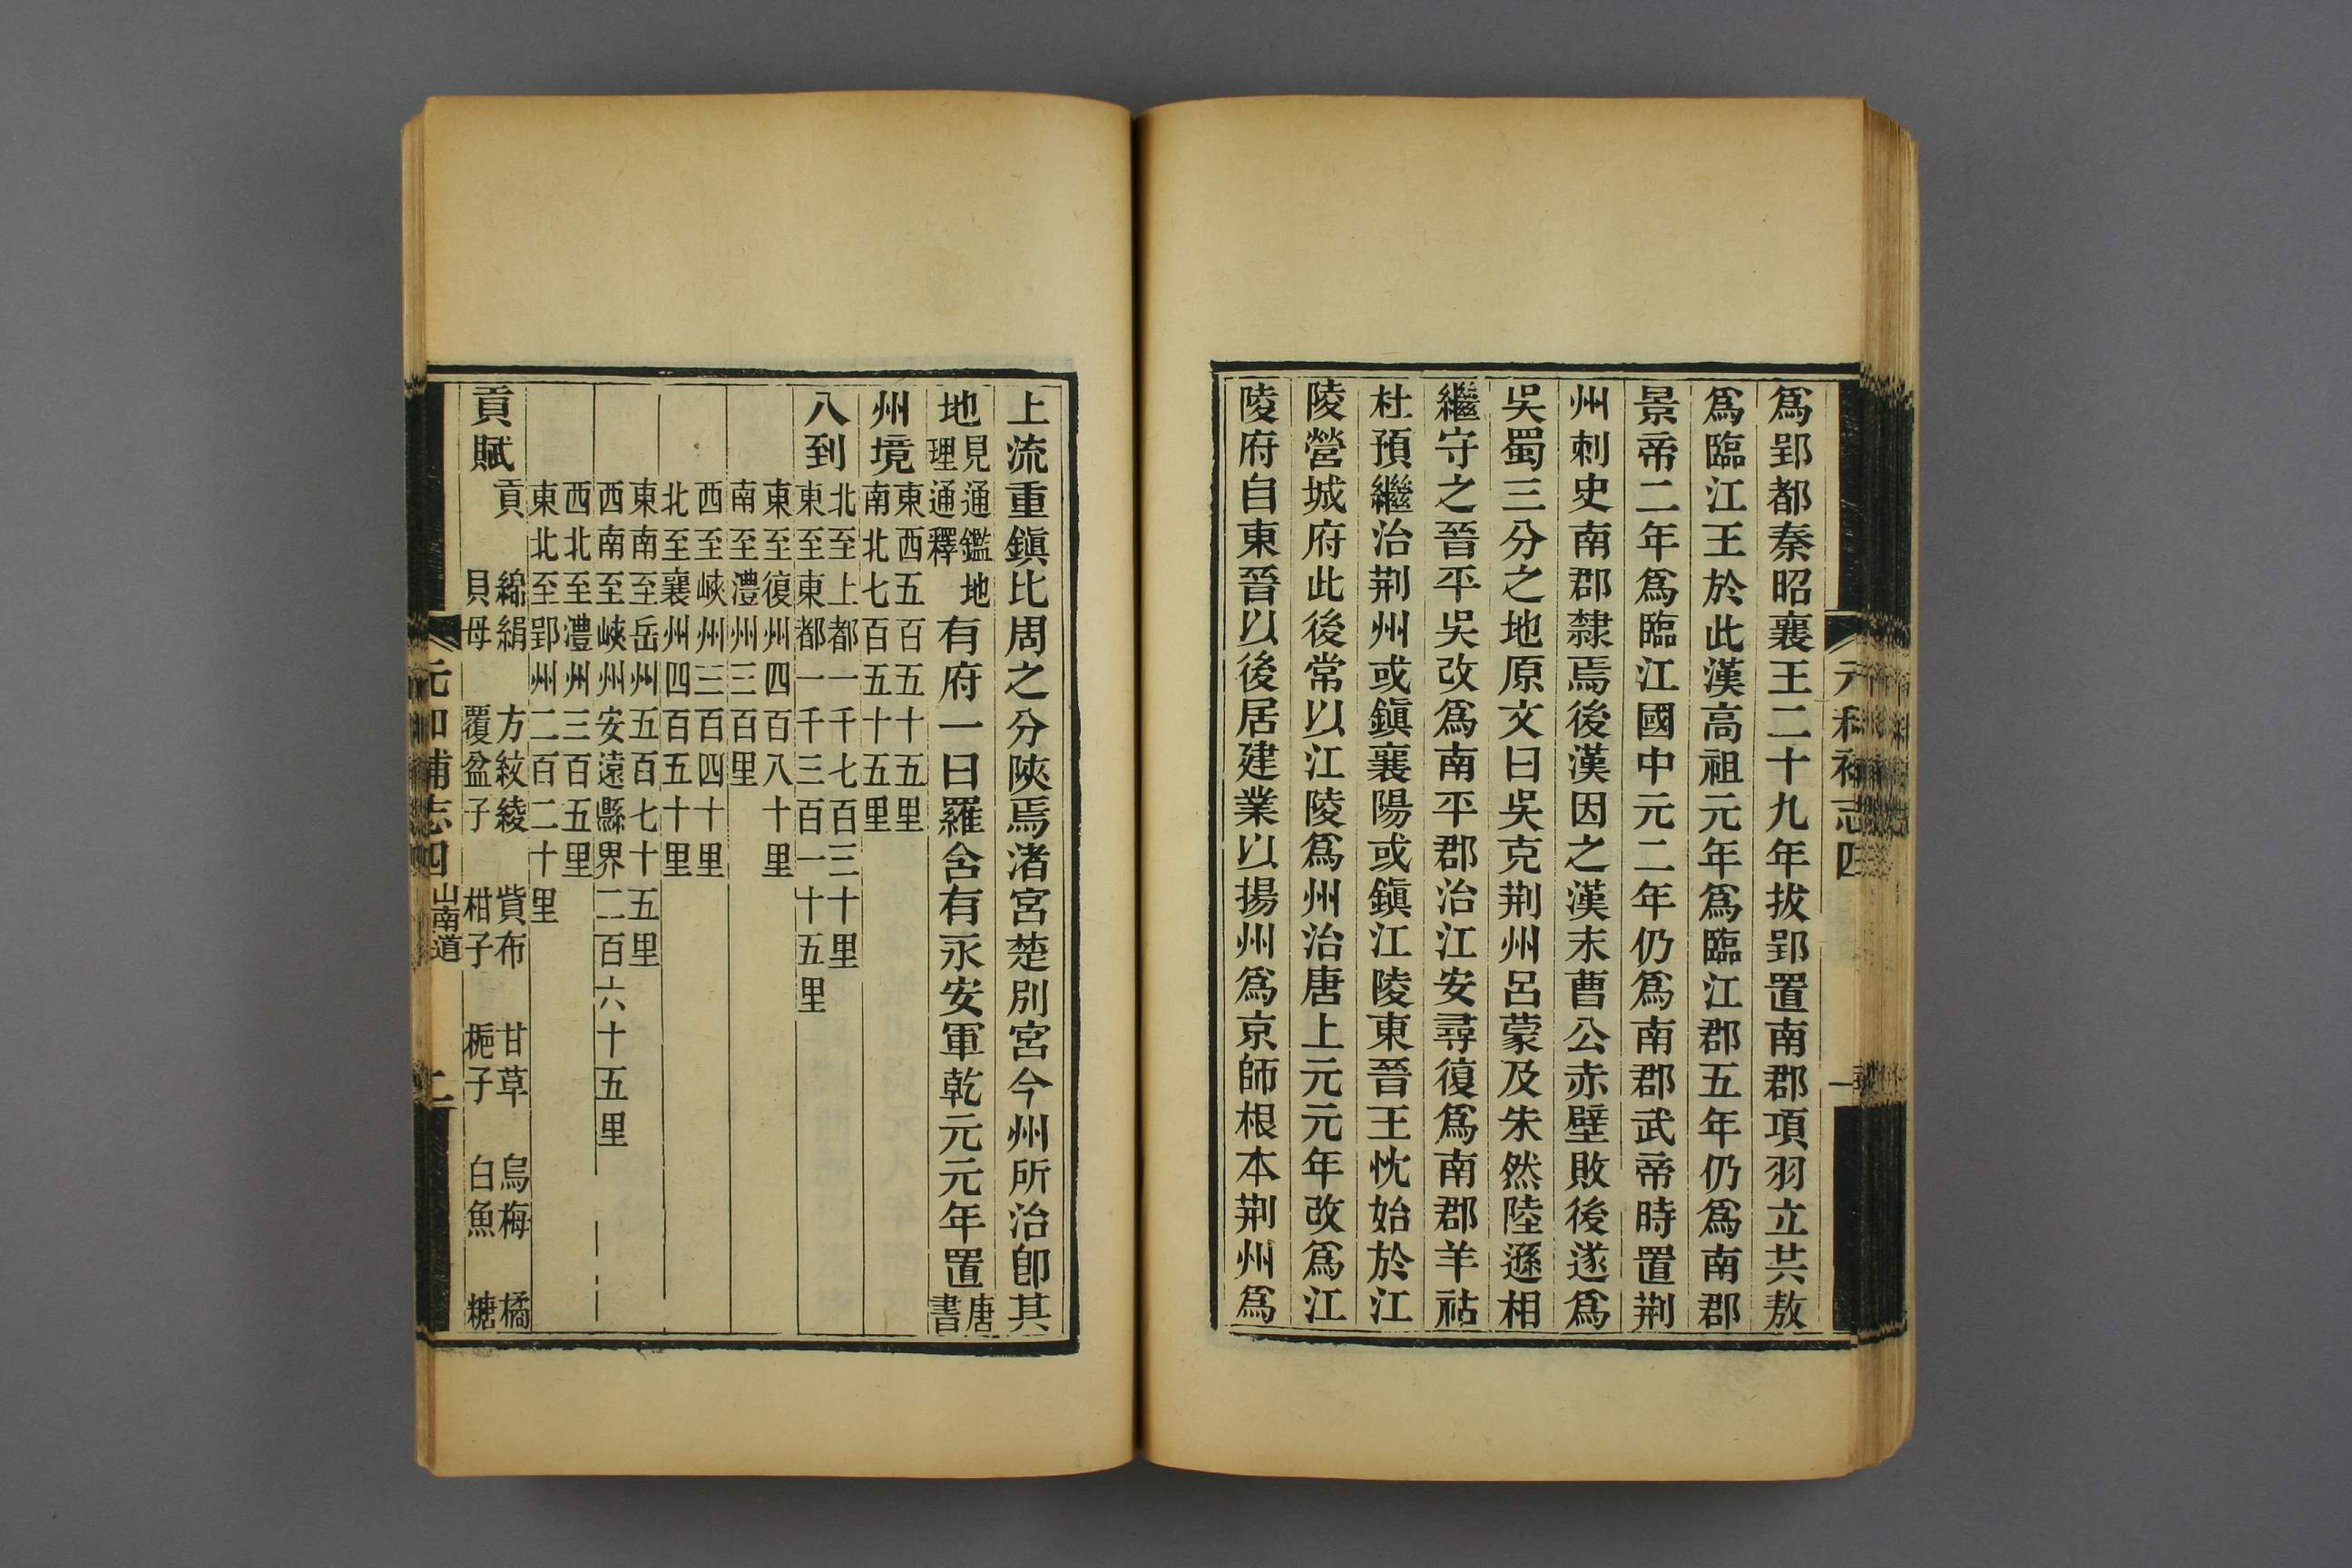 爲郢都秦昭襄王二十九年拔郢置南郡項羽立共敖
爲臨江王於此漢高祖元年爲臨江郡五年仍爲南郡
景帝二年爲臨江國中元二年仍爲南郡武帝時置荆
州刺史南郡隸焉後漢因之漢末曹公赤壁敗後遂爲
吳蜀三分之地原文曰吳克荆州呂蒙及朱然陸遜相
繼守之晉平吳改爲南平郡治江安尋復爲南郡羊祜
杜預繼治荆州或鎭襄陽或鎭江陵東晉王忱始於江
陵營城府此後常以江陵爲州治唐上元元年改爲江
陵府自東晉以後居建業以揚州爲京師根本荆州爲
上流重鎭比周之分陝焉渚宮楚別宮今州所治卽其
地見通鑑地理通釋有府一曰羅含有永安軍乾元元年置唐書
州境東西五百五十五里
南北七百五十五里
八到北至上都一千七百三十里
東至東都一千三百一十五里
東至復州四百八十里
南至澧州三百里
西至峽州三百四十里
北至襄州四百五十里
東南至岳州五百七十五里
西南至峽州安遠縣界二百六十五里
西北至澧州三百五里
東北至郢州二百二十里
貢賦貢 綿絹 方紋綾 貲布 甘草 烏梅 橘
貝母 覆盆子 柑子 梔子 白魚 糖
元和補志四 山南道 二